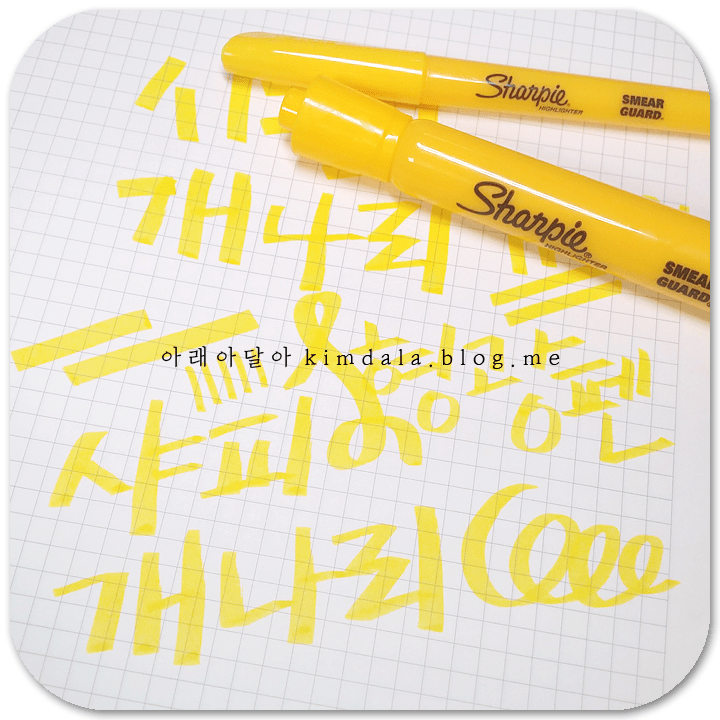 Sharpie®
HIGHLIGHTER
SMEAR
GUARD®
Sharpie®
HIGHLIGHTER
GUARD®
개나리
형광펜
아래아달아 kimdala.blog.me
샤피
개나리